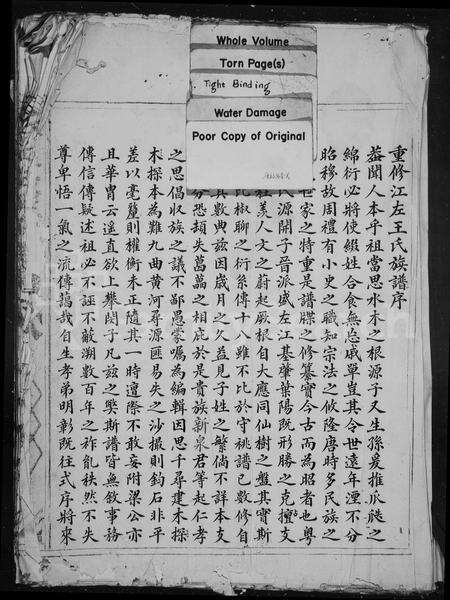 Whole Volume
Torn Page(s)
Tight Binding
Water Damage
Poor Copy of Original
重修江左王氏族譜序
蓋聞人本乎祖當思水木之根源子又生孫爰推瓜瓞之
綿衍必將使綴姓合食無忘戚單豈其令世遠年湮不分
昭穆故周禮有小史之職知宗法之攸隆唐時多民族之
世家之特重是譜牒之修纂實今古而為昭者也粵
氏源開子晉派盛左江基肇葉陽既形勝之克擅支
莊美人文之蔚起厥根自大應同仙樹之盤其實斯
比椒聊之衍系傳十八雖不比於守祧譜已數修自
其數典茲因歲月之久益見子姓之繁倘不詳本支
分恐頻失葛藟之相庇於是貴族新泉君等起仁孝
之思倡收族之議不鄙愚蒙囑為編輯因思千尋建木探
木探本為難九曲黃河尋源匪易失之沙撮則鈞石非平
差以毫釐則權衡未正隨其一時遭際不敢妄附梁公亦
且華胄云遙直欲上攀閔子凡茲之樊斯譜皆無敘事務
傳信傳疑述祖必不誣不蔽溯數百年之祚亂秩然不失
尊卑悟一氣之流傳藹哉自生孝弟明彰既往式序將來